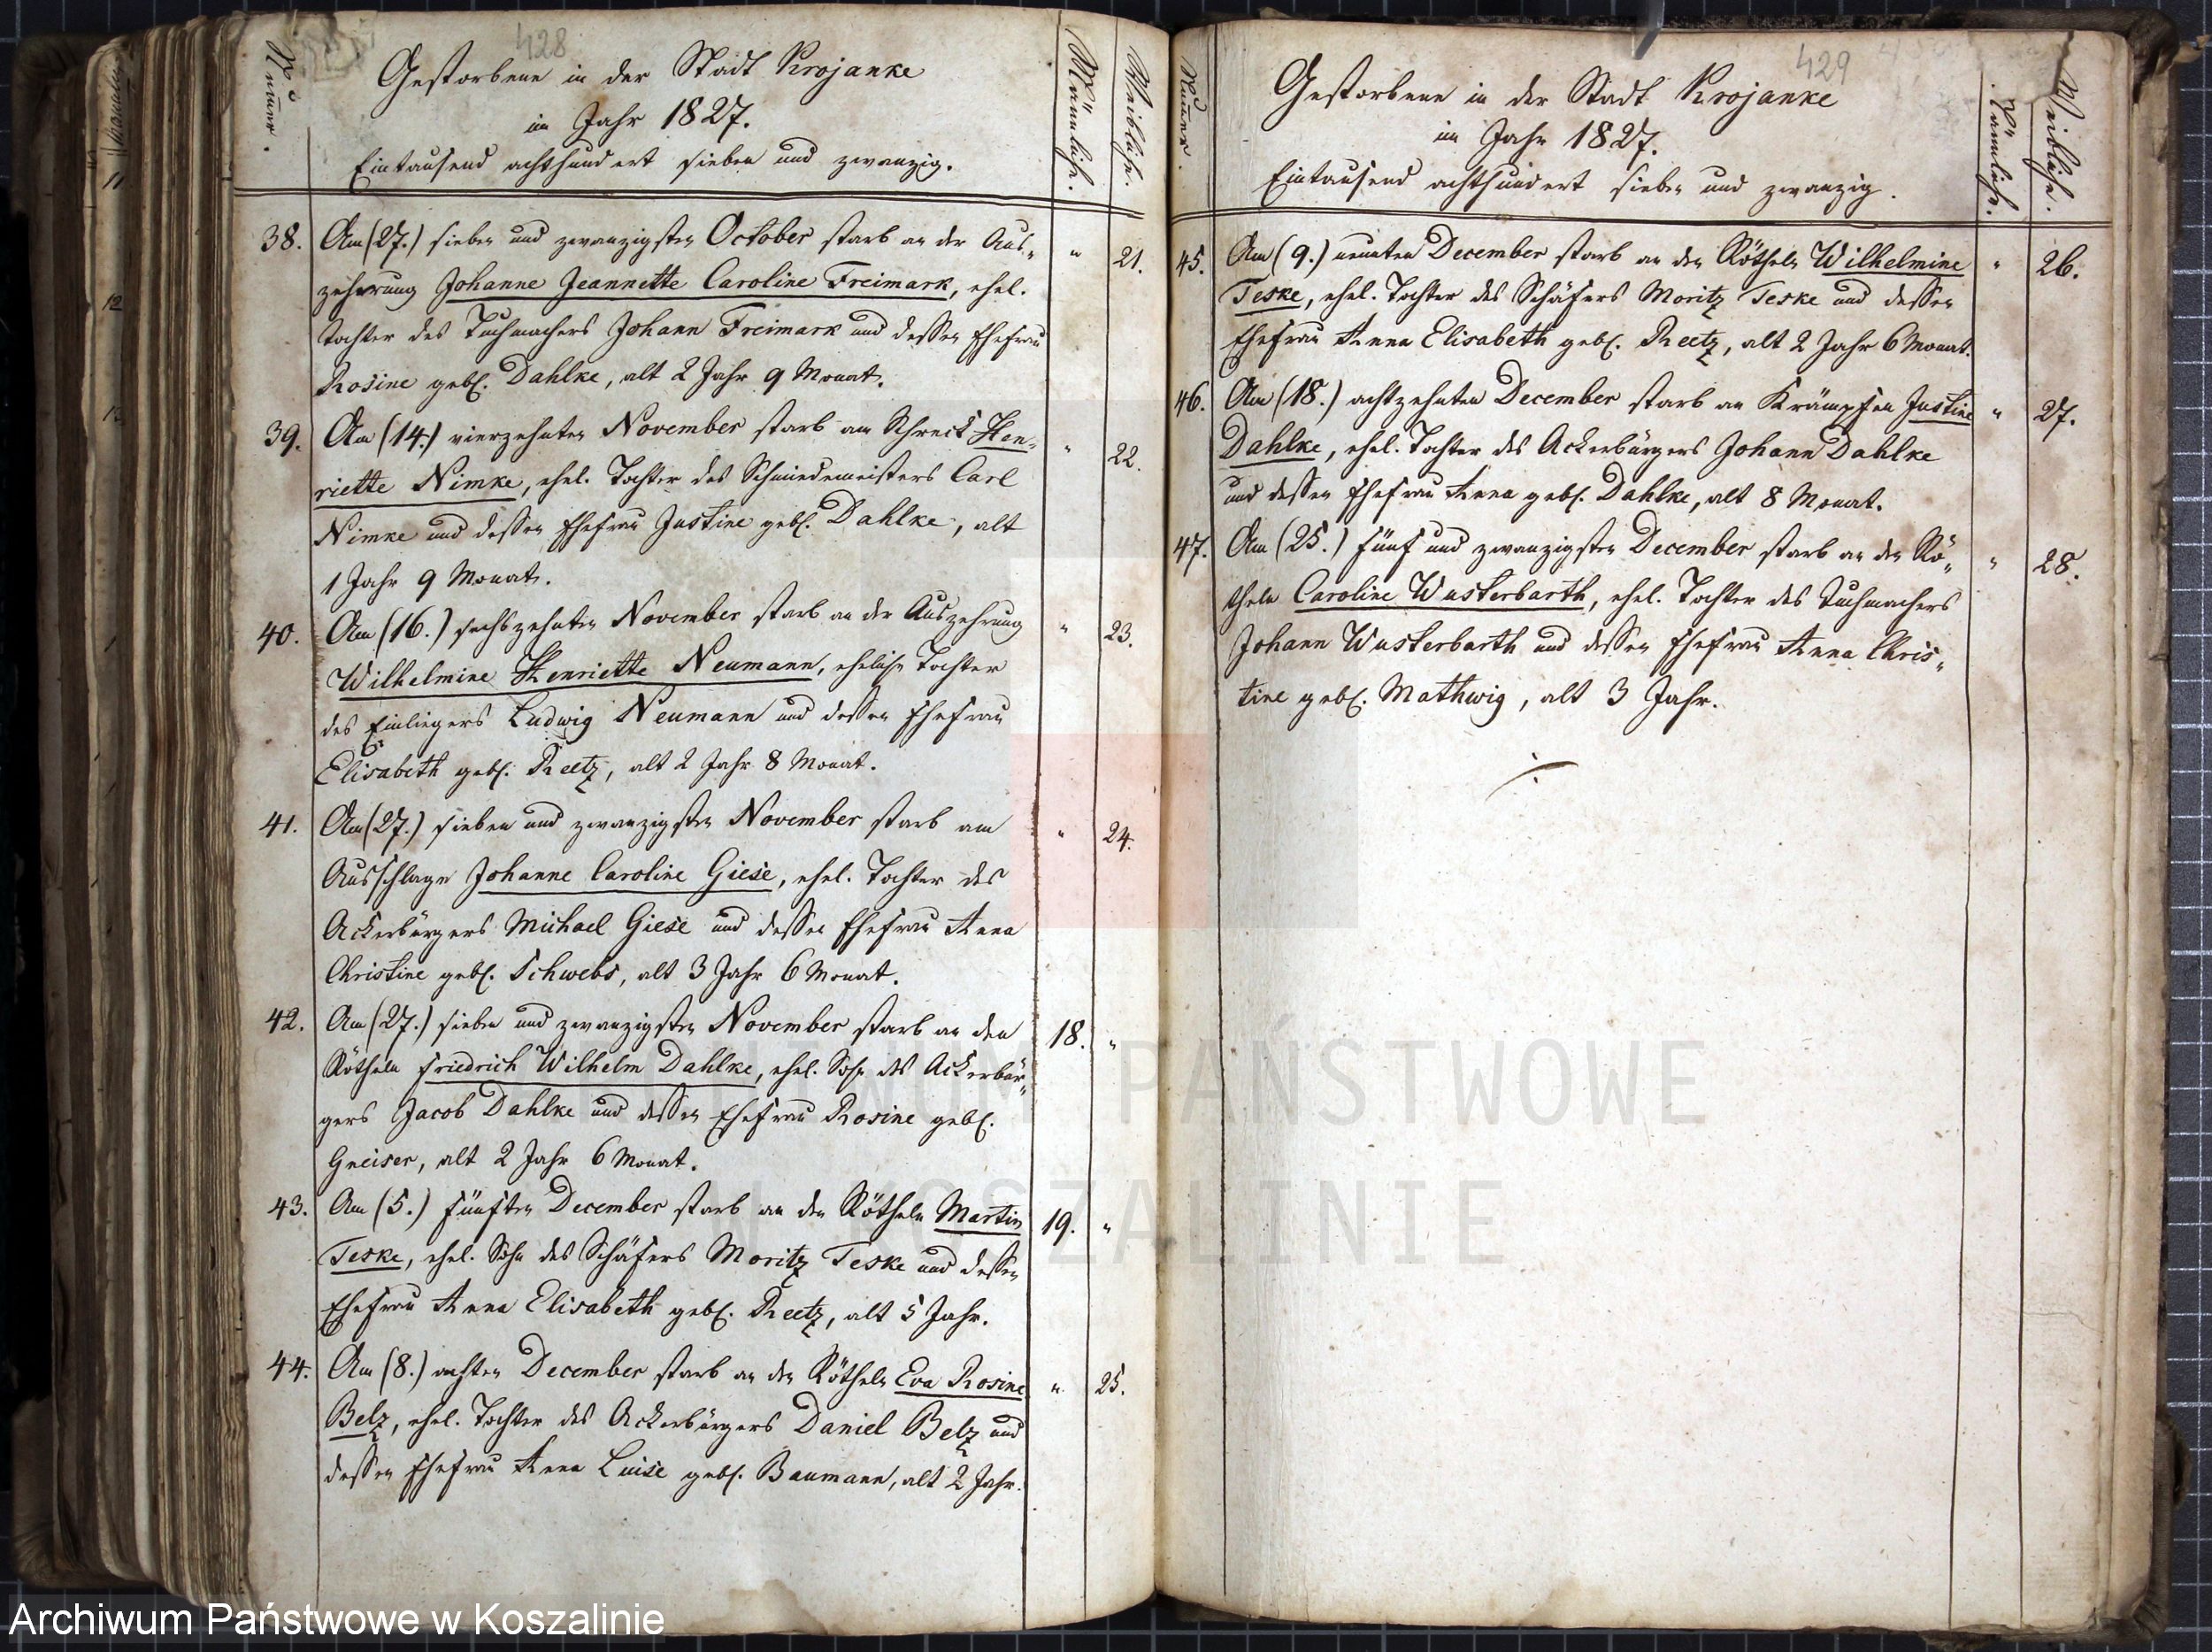 428
Numer.
Gestorbene in der Stadt Krojanke
im Jahr 1827.
Eintausend achthundert sieben und zwanzig.
Männliche.
Weibliche.
38. Am (27.) sieben und zwanzigsten October starb an der Aus- " 21.
zehrung Johanne Jeannette Caroline Freimark, ehel.
Tochter des Tuchmachers Johann Freimark und dessen Ehefrau
Rosine geb. Dahlke, alt 2 Jahr 9 Monat.
39. Am (14.) vierzehnten November starb am Schreck Hen- " 22.
riette Nimke, ehel. Tochter des Schmiedemeisters Carl
Nimke und dessen Ehefrau Justine geb. Dahlke, alt
1 Jahr 9 Monat.
40. Am (16.) sechszehnten November starb an der Auszehrung " 23.
Wilhelmine Henriette Neumann, eheliche Tochter
des Einliegers Ludwig Neumann und dessen Ehefrau
Elisabeth geb. Reetz, alt 2 Jahr 8 Monat.
41. Am (27.) sieben und zwanzigsten November starb am " 24.
Ausschlage Johanne Caroline Giese, ehel. Tochter des
Ackerbürgers Michael Giese und dessen Ehefrau Anna
Christine geb. Schwebs, alt 3 Jahr 6 Monat.
42. Am (27.) sieben und zwanzigsten November starb an den 18. "
Rötheln Friedrich Wilhelm Dahlke, ehel. Sohn des Ackerbür-
gers Jacob Dahlke und dessen Ehefrau Rosine geb.
Gneiser, alt 2 Jahr 6 Monat.
43. Am (5.) fünften December starb an den Rötheln Martin 19. "
Teske, ehel. Sohn des Schäfers Moritz Teske und dessen
Ehefrau Anna Elisabeth geb. Reetz, alt 5 Jahr.
44. Am (8.) achten December starb an den Rötheln Eva Rosine " 25.
Belz, ehel. Tochter des Ackerbürgers Daniel Belz und
dessen Ehefrau Anna Luise geb. Baumann, alt 2 Jahr.
429
Numer.
Gestorbene in der Stadt Krojanke
im Jahr 1827.
Eintausend achthundert sieben und zwanzig.
Männliche.
Weibliche.
45. Am (9.) neunten December starb an den Rötheln Wilhelmine " 26.
Teske, ehel. Tochter des Schäfers Moritz Teske und dessen
Ehefrau Anna Elisabeth geb. Reetz, alt 2 Jahr 6 Monat.
46. Am (18.) achtzehnten December starb an Krämpfen Justine " 27.
Dahlke, ehel. Tochter des Ackerbürgers Johann Dahlke
und dessen Ehefrau Anna geb. Dahlke, alt 8 Monat.
47. Am (25.) fünf und zwanzigsten December starb an den Rö- " 28.
theln Caroline Wusterbarth, ehel. Tochter des Tuchmachers
Johann Wusterbarth und dessen Ehefrau Anna Chris-
tine geb. Mathwig, alt 3 Jahr.
PAŃSTWOWE
KOSZALINIE
Archiwum Państwowe w Koszalinie